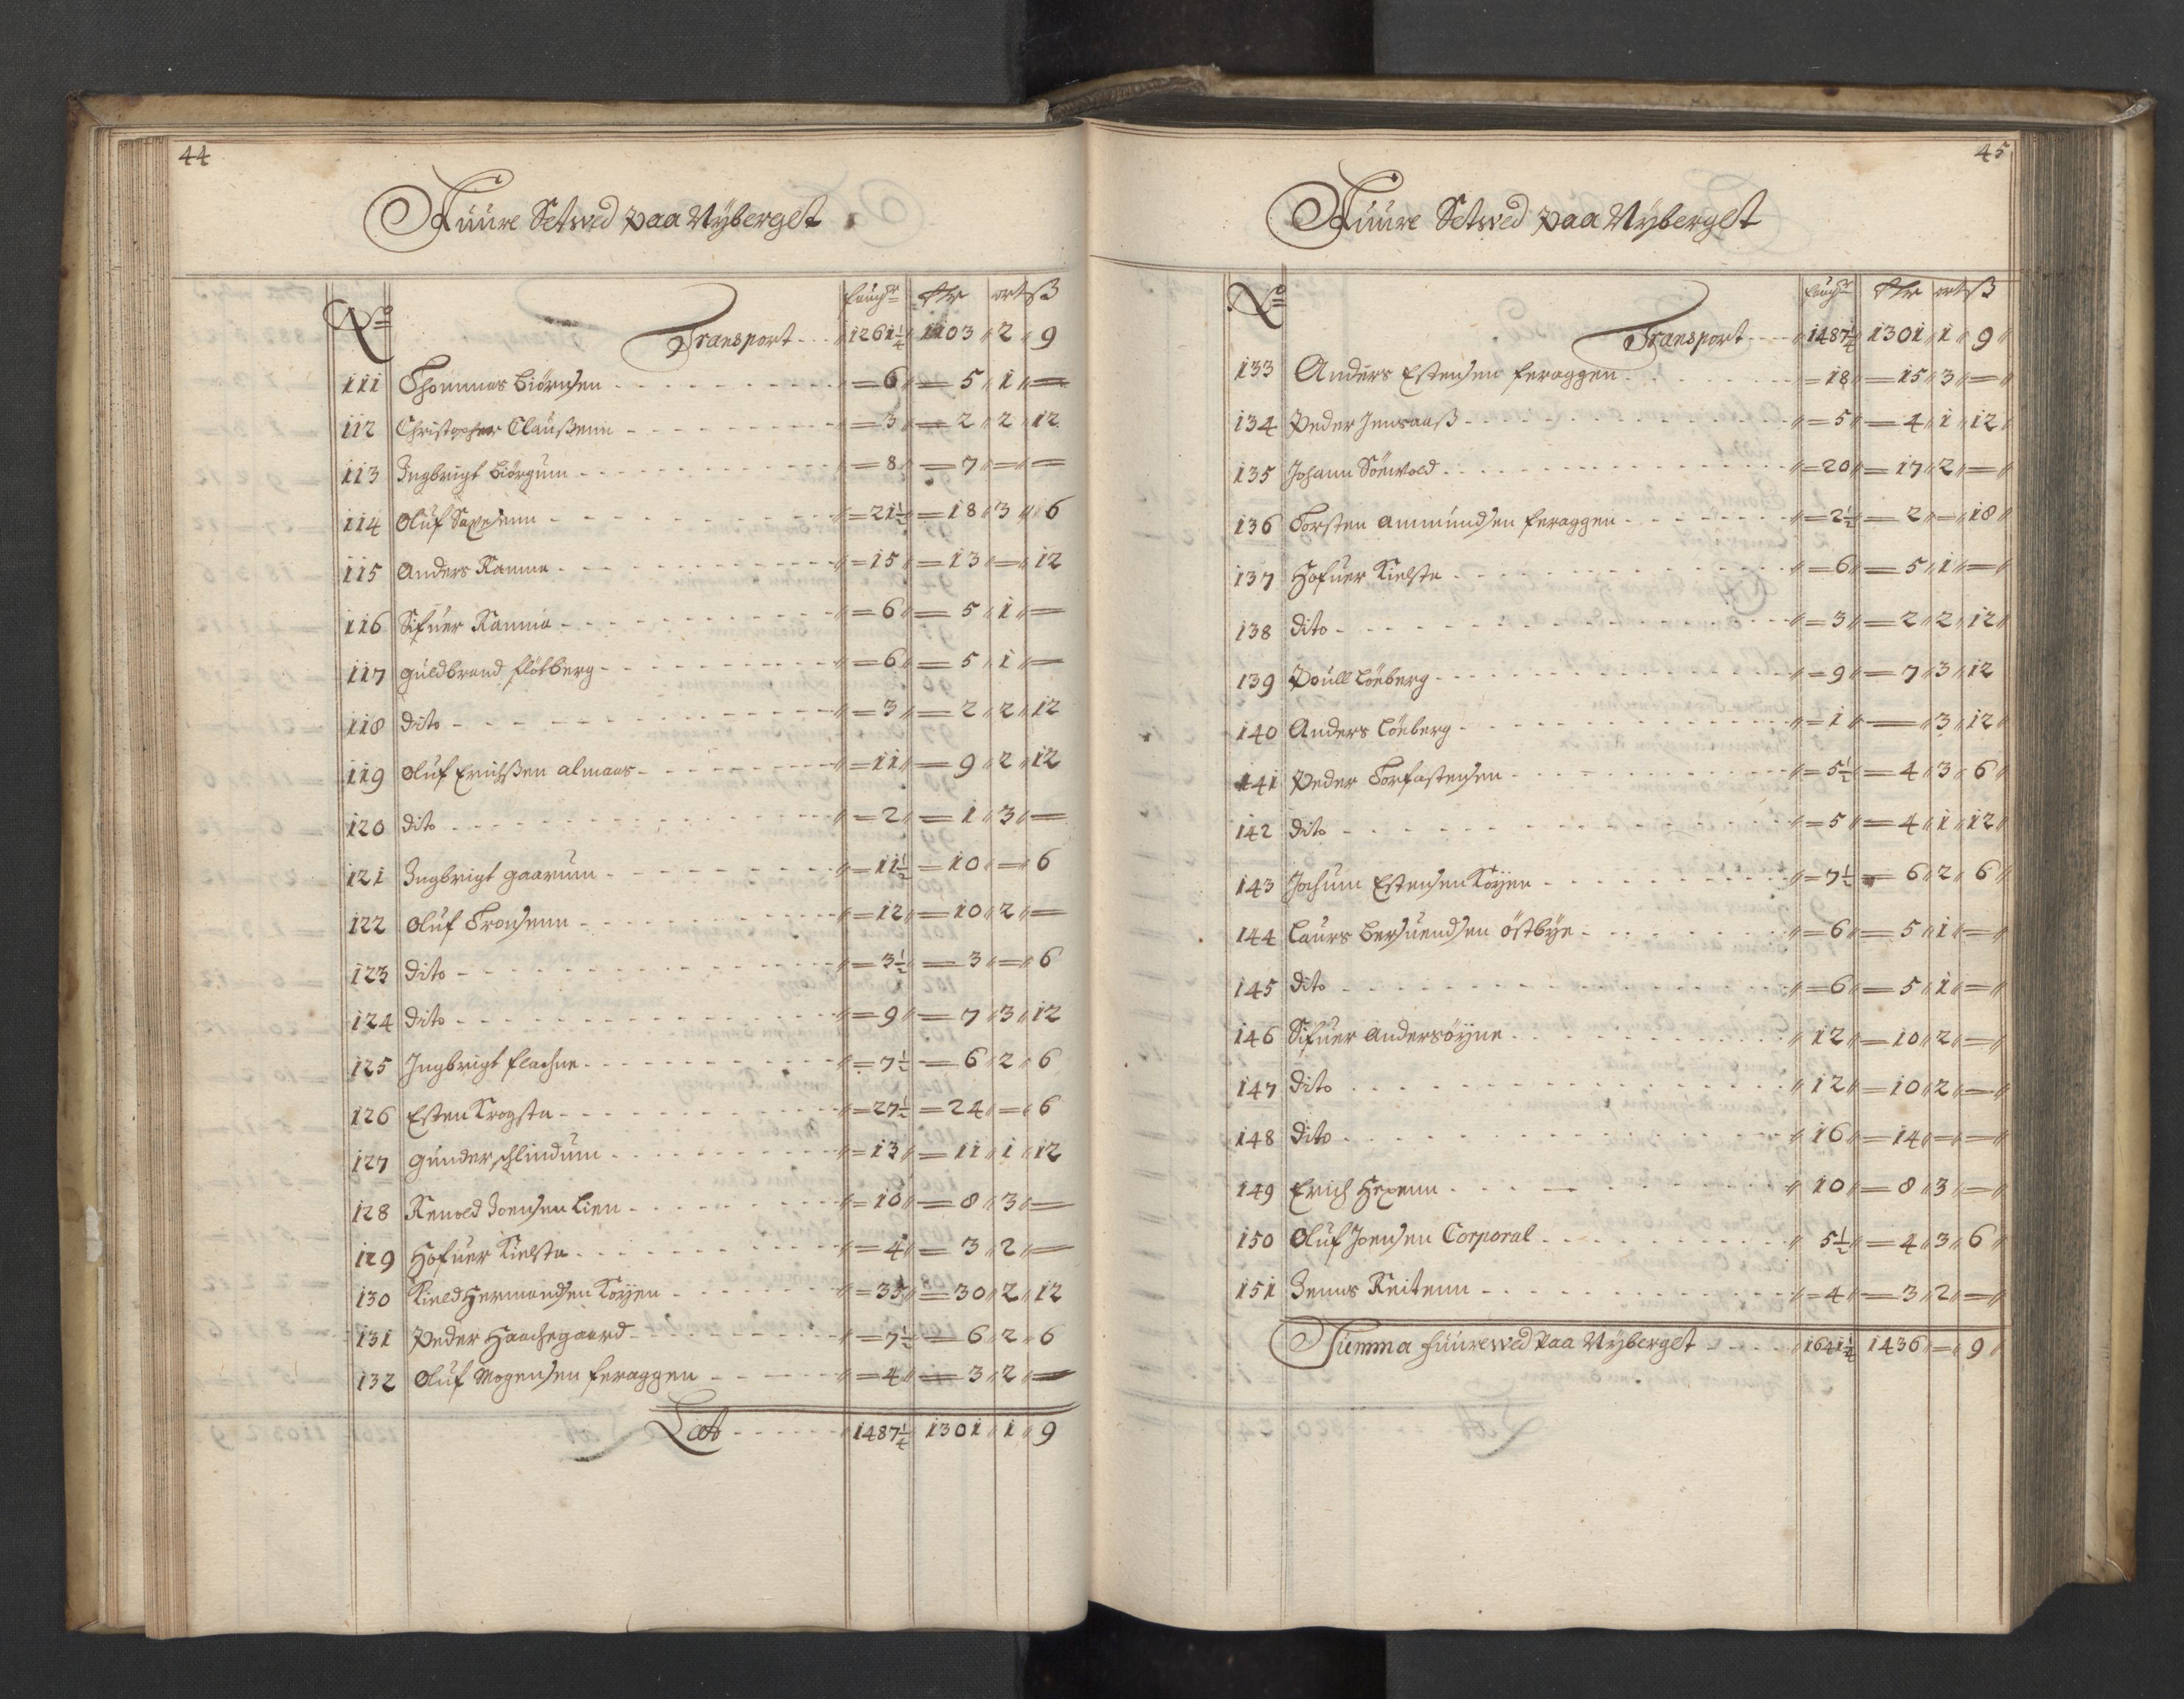 44
Fuure Setwed paa Nyberget
No
fauchr Rdr ort ß
Transport 1261¼ 1103 2 9
111 Thommas Biörnsen = 6 = 5 1 =
112 Christopher Claussenn = 3 = 2 2 12
113 Ingbrigt Biörgum = 8 = 7 = =
114 Oluf Saxesenn = 21½ = 18 3 6
115 Anders Ramme = 15 = 13 = 12
116 Sifuer Ramme = 6 = 5 1 =
117 Guldbrand flötberg = 6 = 5 1 =
118 dito = 3 = 2 2 12
119 Oluf Erichssen almaas = 11 = 9 2 12
120 dito = 2 = 1 3 =
121 Ingbrigt gaarum = 11½ = 10 = 6
122 Oluf Tronsenn = 12 = 10 2 =
123 dito = 3½ = 3 = 6
124 dito = 9 = 7 3 12
125 Ingbrigt = 7½ = 6 2 6
126 Esten Krogsta = 27½ = 24 = 6
127 Gunder = 13 = 11 1 12
128 Renold Joensen Lien = 10 = 8 3 =
129 Hofuer Kielsta = 4 = 3 2 =
130 Kield Hermandsen Koyen = 35 = 30 2 12
131 Peder Haachegaard = 7½ = 6 2 6
132 Oluf Mogensen feraggen = 4 = 3 2 =
Lat 1487¼ 1301 1 9
45
Fuure Setwed paa Nyberget
No
fauchr Rdr ort ß
Transport 1487¼ 1301 1 9
133 Anders Estensen feraggen = 18 = 15 3 =
134 Peder Jensaass = 5 = 4 1 12
135 Johann = 20 = 17 2 =
136 Torsten Ammundsen feraggen = 2½ = 2 = 18
137 Hofuer Kielsta = 6 = 5 1 =
138 dito = 3 = 2 2 12
139 Poull Löeberg = 9 = 7 3 12
140 Anders Löeberg = 1 = 3 12
141 Peder Torfastensen = 5½ = 4 3 6
142 dito = 5 = 4 1 12
143 Jochum Estensen Koyen = 7½ = 6 2 6
144 Laurs Bersuendsen östbye = 6 = 5 1 =
145 dito = 6 = 5 1 =
146 Sifuer Andersöyne 12 = 10 2 =
147 dito 12 = 10 2 =
148 dito 16 = 14 = =
149 Erich Hexemm 10 = 8 3 =
150 Oluf Joensen Corporal 5½ = 4 3 6
151 Jenns Reitenn = 4 = 3 2 =
Summa fuurewed paa Nyberget 1641¼ 1436 = 9